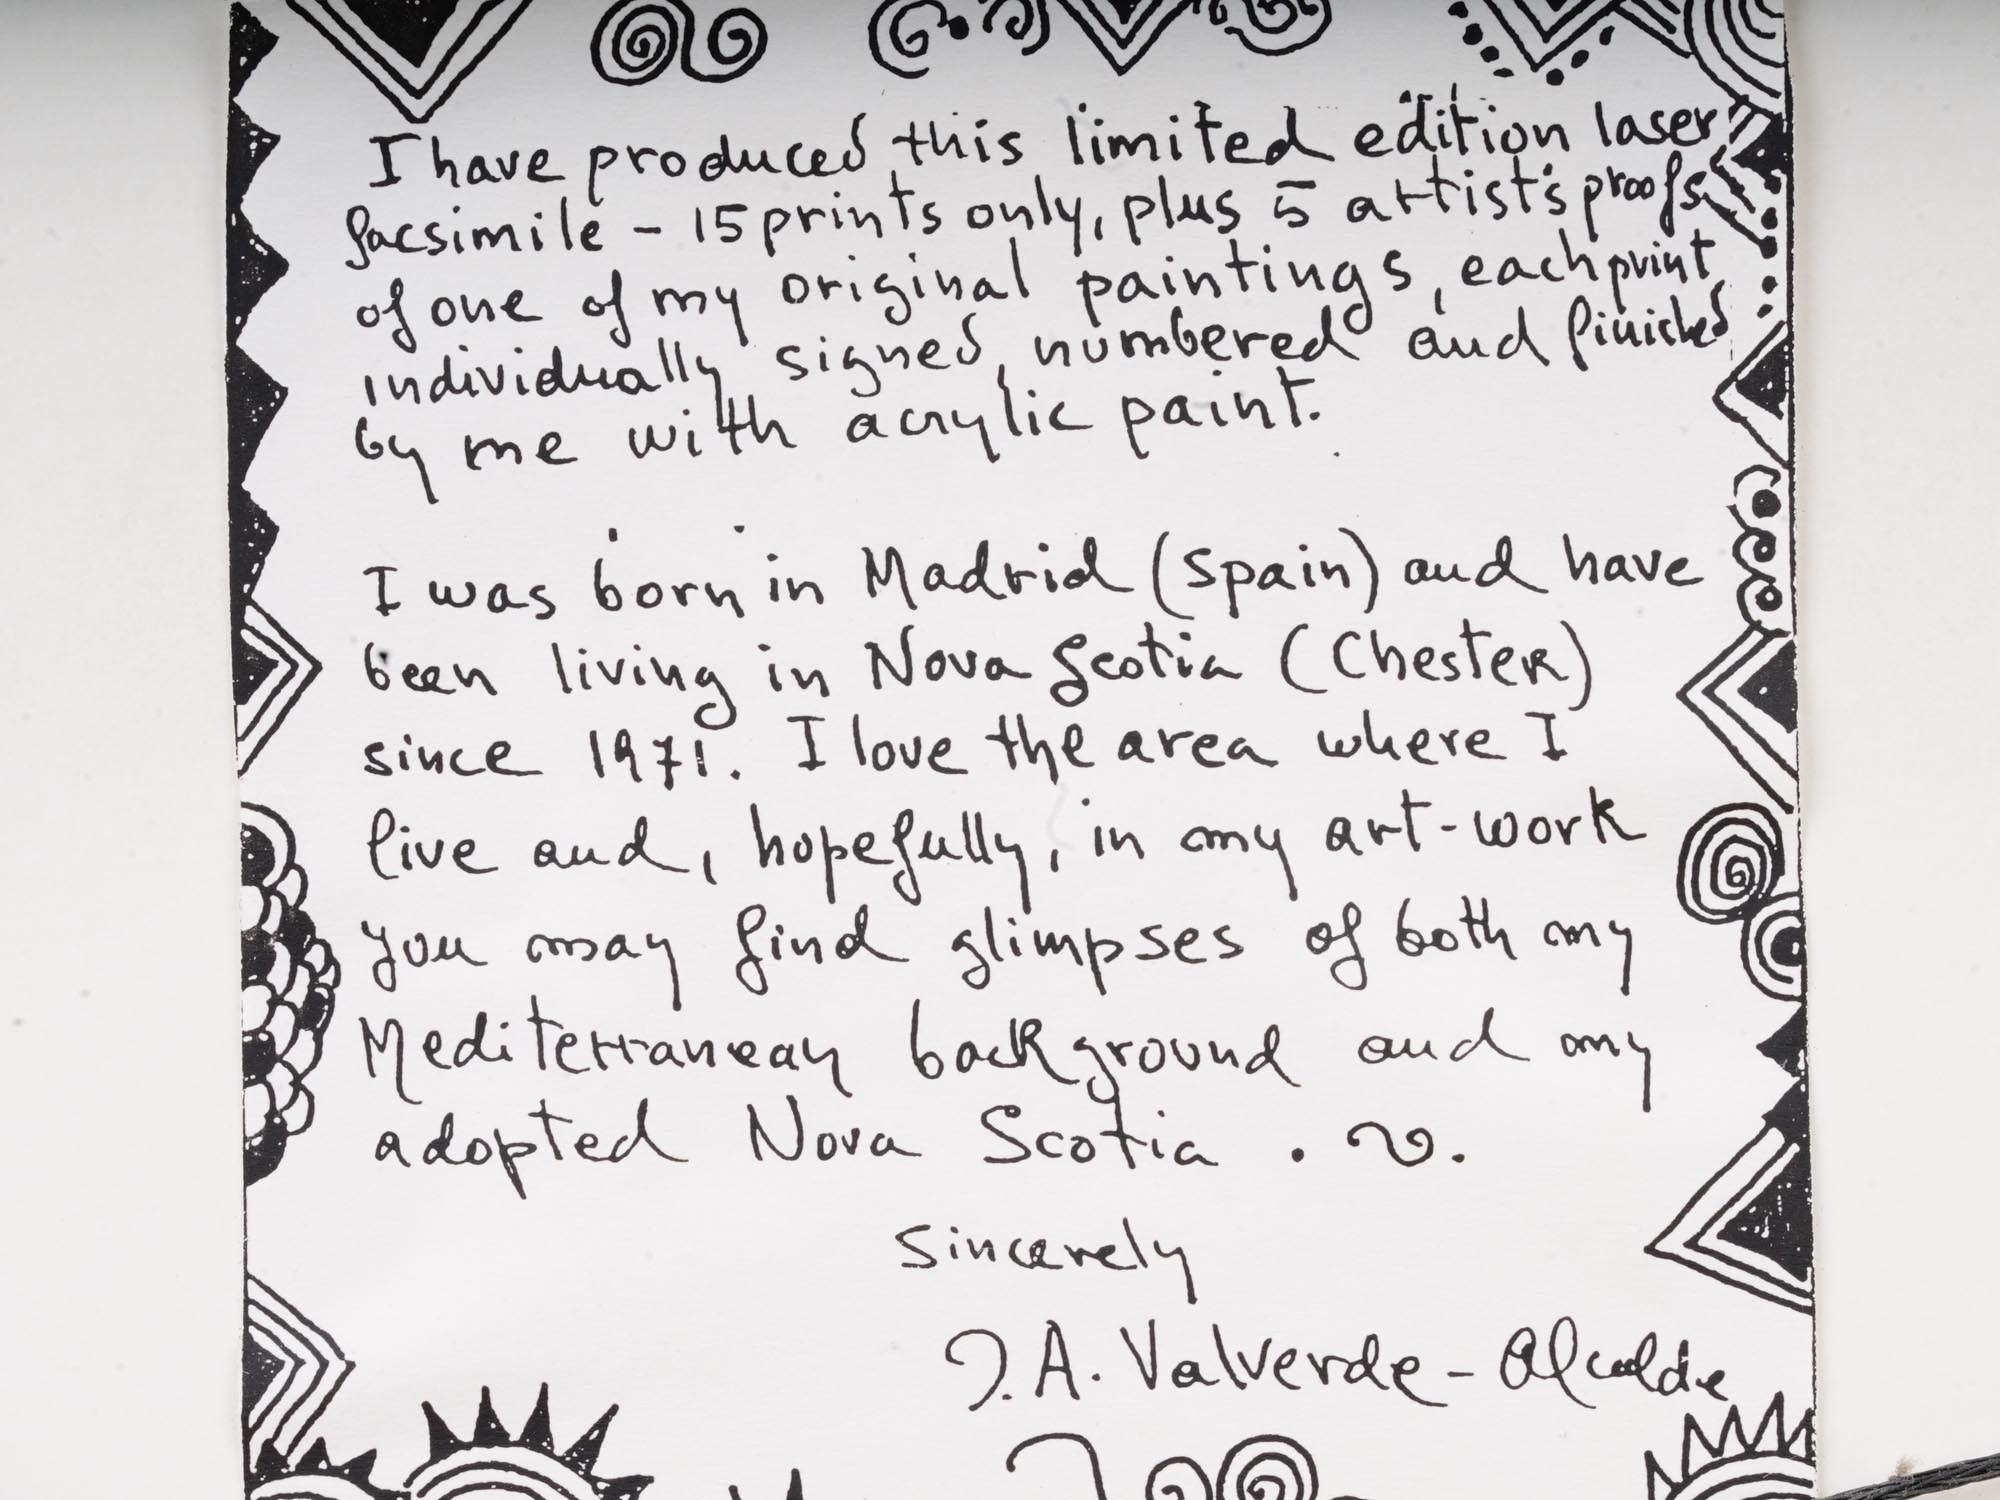 I have produced this limited edition laser
facsimile - 15 prints only, plus 5 artist's proofs
of one of my original paintings, each print
individually signed, numbered and finished
by me with acrylic paint.
I was born in Madrid (Spain) and have
been living in Nova Scotia (Chester)
since 1971. I love the area where I
live and, hopefully, in my art-work
you may find glimpses of both my
Mediterranean background and my
adopted Nova Scotia.
Sincerely
J. A. Valverde - Alcalde